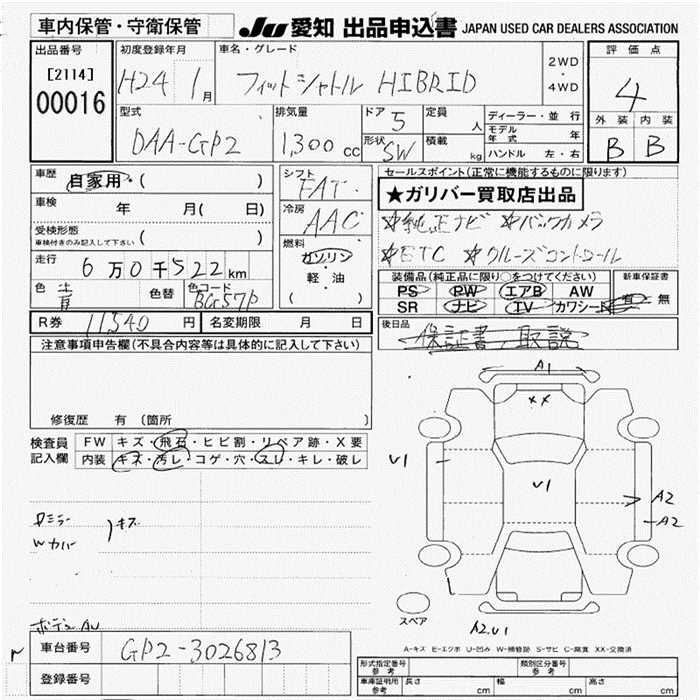 車内保管・守衛保管
JU 愛知 出品申込書 JAPAN USED CAR DEALERS ASSOCIATION
出品番号
[2114]
00016
初度登録年月
H24 1月
車名・グレード
フィットシャトル HIBRID
2WD
・
4WD
評価点
4
外装 内装
B B
型式
DAA-GP2
排気量
1,300 cc
ドア 5
形状 SW
定員 人
積載 kg
ディーラー・並行
モデル年式 年
ハンドル 左・右
車歴 自家用・( )
車検 年 月( 日)
受検形態
車検付きのみ記入して下さい ( )
走行 6万0千522km
色 青 色替 色コード BG57P
R券 11540 円 名変期限 月 日
シフト FAT
冷房 AAC
燃料
ガソリン
・
軽・油
( )
セールスポイント(正常に機能するものに限ります)
★ガリバー買取店出品
☆純正ナビ ☆バックカメラ
☆ETC ☆クルーズコントロール
装備品(純正品に限り○をつけてください)
PS PW エアB AW
SR ナビ TV カワシート
新車保証書
有・無
後日品
保証書、取説
注意事項申告欄(不具合内容等は具体的に記入して下さい)
修復歴 有 (箇所
検査員記入欄
FW キズ・飛石・ヒビ割・リペア跡・X要
内装 キズ・汚レ・コゲ・穴・スレ・キレ・破レ
A1
XX
U1
U1
A2
A2
A2.U1
スペア
Wカバー
キズ
ボデーAU
A-キズ E-エクボ U-凹み W-補修跡 S-サビ C-腐食 XX-交換済
車台番号 GP2-3026813
登録番号
形式指定番号 参考
類別区分番号 参考
車庫証明用 参考 長さ cm 幅 cm 高さ cm